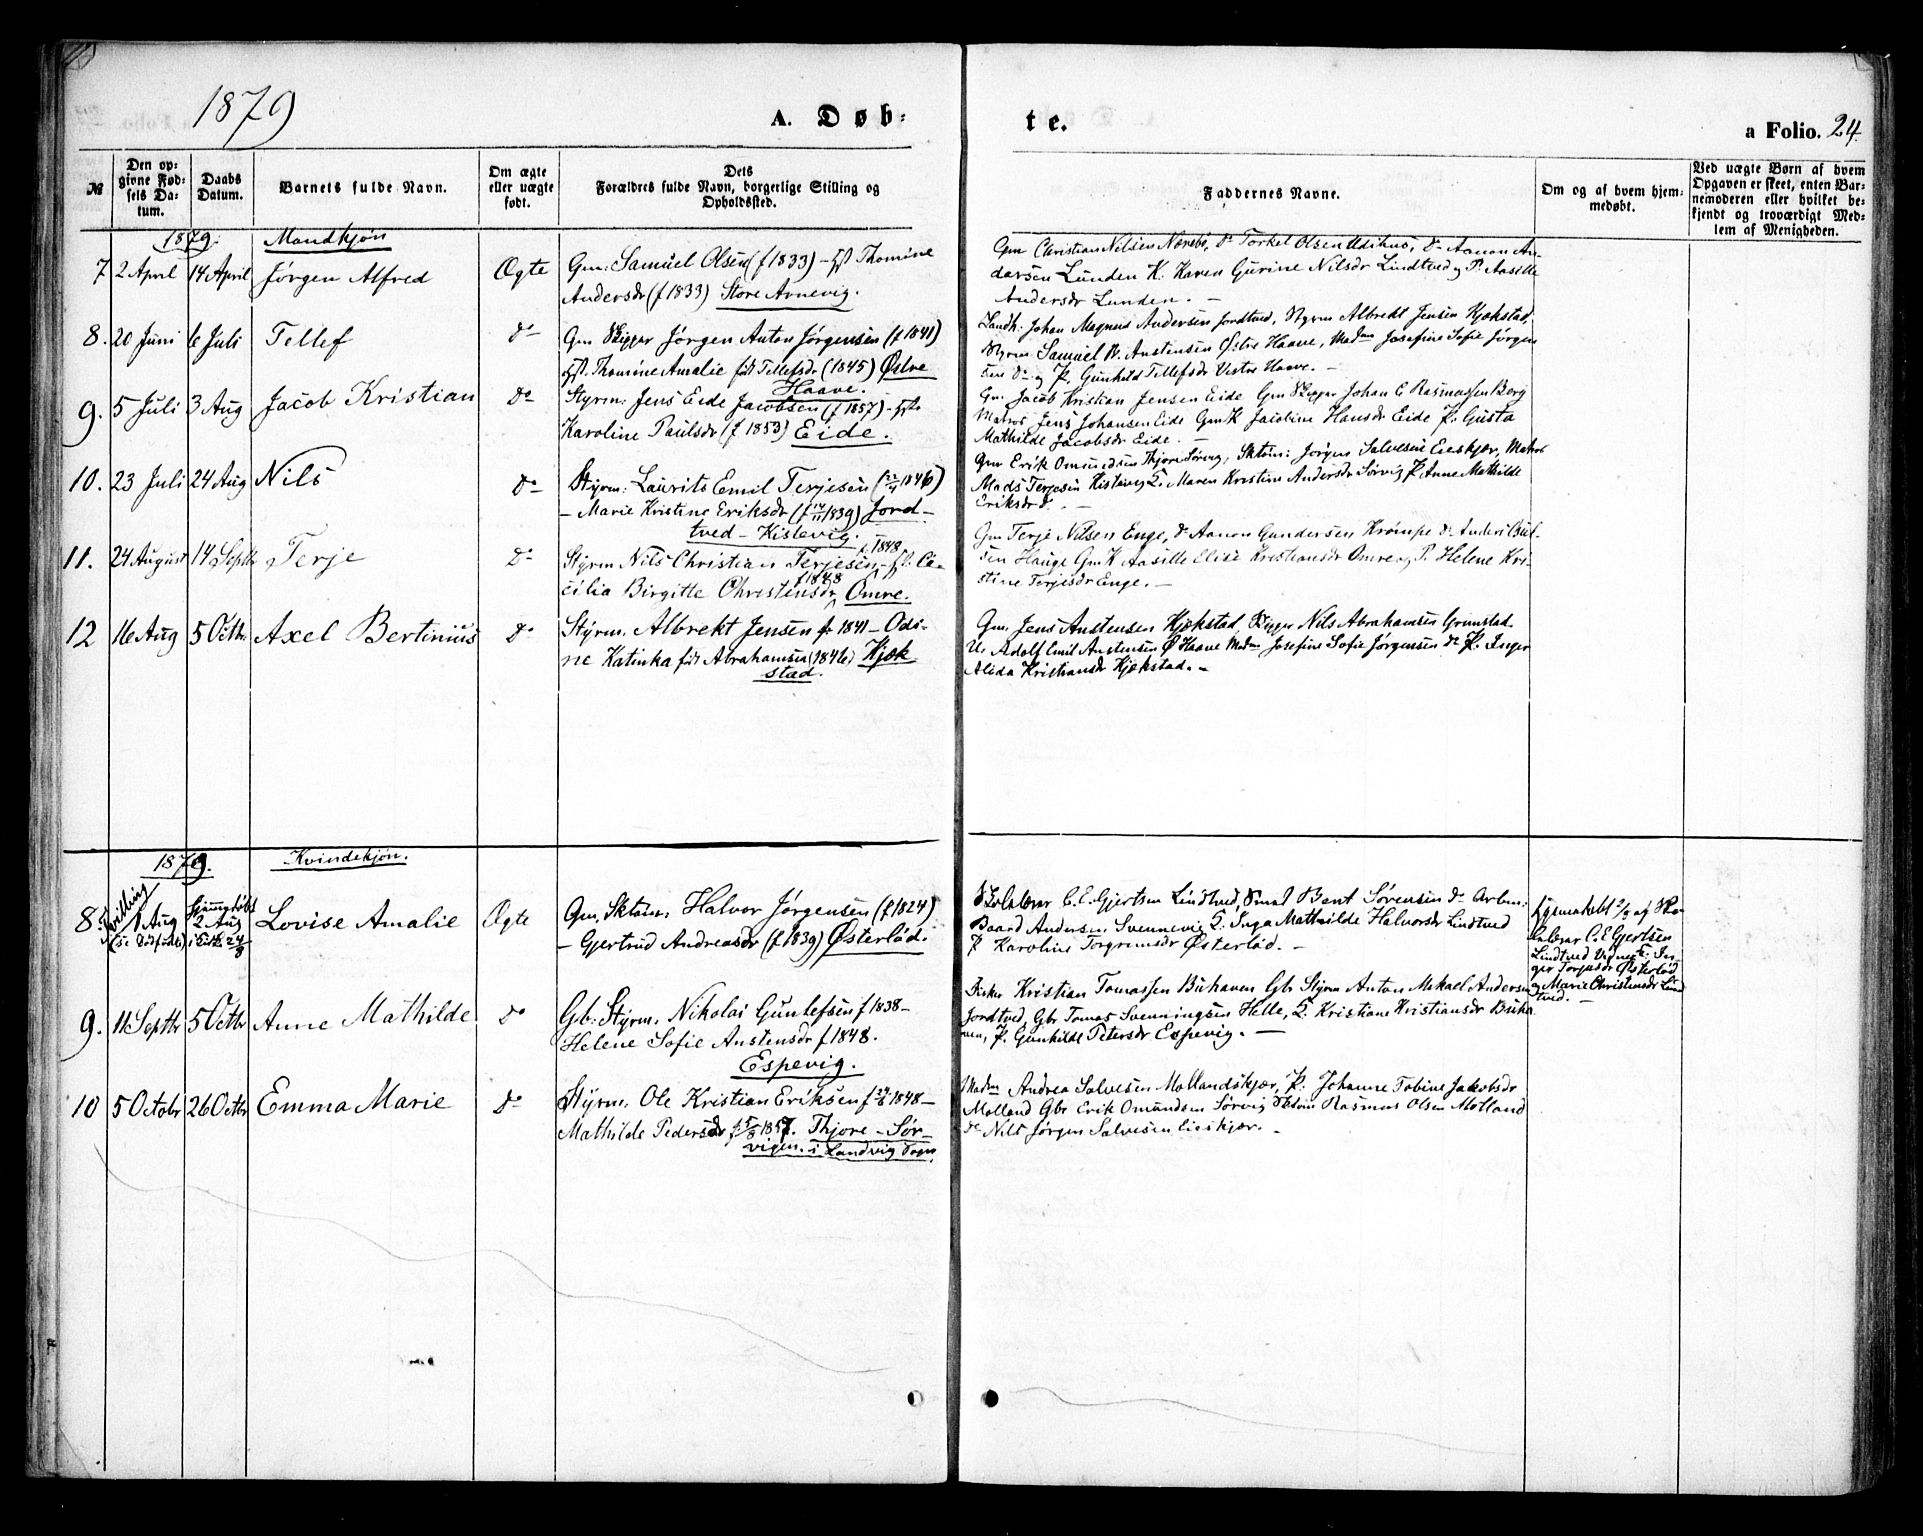 1879
A. Døb-
te.
a Folio. 24.
№
Den op-
givne Fød-
sels Da-
tum.
Daabs
Datum.
Barnets fulde Navn.
Om ægte
eller uægte
født.
Dets
Forældres fulde Navn, borgerlige Stilling og
Opholdssted.
Faddernes Navne.
Om og af hvem hjem-
medøbt.
Ved uægte Børn af hvem
Opgaven er skeet, enten Bar-
nemoderen eller hvilket be-
kjendt og troværdigt Med-
lem af Menigheden.
1879. Mandkjøn
7 2 April 14 April Jørgen Alfred Ægte Gm: Samuel Olsen (f 1833) – Thomine
Andersdr (f 1833) Store Arnevig.
Gm Christian Nilsen Næsebø, do Torkel Olsen, do Aanon An-
dersen Lunden K. Karen Gurine Nilsdr Lindtved og P. Aasille
Andersdr Lunden. –
8. 20 Juni 6 Juli Tellef do Gm Skipper Jørgen Anton Jørgensen (f 1841)
Thomine Amalie født Tellefsdr (1845) Østre
Haave.
Landh. Johan Magnus Andersen Jordtved, Styrm Albredt Jensen Kjækstad,
Styrm Samuel Austensen Østre Haave, Madm Josefine Sofie Jørgen
sen do og P. Gunhild Tellefsdr Vestre Haave. –
9. 5 Juli 3 Aug Jacob Kristian do Styrm: Jens Eide Jacobsen (f 1857) –
Karoline Paulsdr (f 1853) Eide.
Gm. Jacob Kristian Jensen Eide Gm Skipper Johan C Rasmussen Borg
Matros Jens Johansen Eide GmK Jacobine Hansdr Eide P. Gusta
Mathilde Jacobsdr Eide. –
10. 23 Juli 24 Aug Nils do Styrm: Laurits Emil Terjesen (1846)
– Marie Kristine Eriksdr (f 1839) Jord-
tved – Kistevig.
Gm Erik Omundsen Thjore Sørvig, Sktøm: Jørgen Salvesen Eeskjær, Matros
Mads Terjesen Kistevig P. Maren Kristine Andersdr Sørvig P. Anne Mathilde
Eriksdr do. –
11. 24 August 14 Septbr Terje do Styrm Nils Christian Terjesen f. 1848 – Ce-
cilia Birgitte Christensdr f 1848 Omre.
Gm Terje Nilsen Enge, do Aanon Gundersen Krømpe do Anders
Hauge GmK Aasille Elise Kristiansdr Omre og P. Helene Kri-
stine Terjesdr Enge. –
12 16 Aug 5 Octbr Axel Bertinius do Styrm. Albrekt Jensen f 1841 – Odi-
ne Katinka født Abrahamsen (1846) Kjæk
stad.
Gm. Jens Austensen Kjækstad Skipper Nils Abrahamsen Grimstad
Adolf Emil Austensen Ø Haave Madm Josefine Sofie Jørgensen do P. Inger
Alida Kristiansdr Kjækstad. –
1879. Kvindekjøn.
8. Tvilling 1 Aug Hjemmedøbt 2 Aug i Kirke 24/8 Lovise Amalie Ægte Gm, Sktøm, Halvor Jørgensen (f 1824)
– Gjertrud Andreasdr (f 1839) Østerlød.
Skolelærer C. E. Gjertsen Lindtved, Smed Bent Sørensen do Arbm:
Baard Andersen Svennevig P. Inga Mathilde Halvorsdr Lindtved
P Karoline Torgrimsdr Østerlød. –
Hjemmedøbt 2/8 af Sko-
lelærer C. E Gjertsen
Lindtved Vidner: In-
ger Torjusdr Østerlød
og Marie Christensdr Lind
tved. –
9. 11 Septbr 5 Octbr Anne Mathilde do Gb: Styrm. Nikolai Gunlefsen f 1838 –
Helene Sofie Austensdr f 1848.
Espevig.
Fisker Kristian Tomassen Buhaven Gb Styrm Anton Mekael Andersen
Jordtved, Gbr Tomas Svenningsen Helle, P. Kristiane Kristiansdr Buha
ven, P. Gunhilde Petersdr Espevig. –
10 5 Octobr 26 Octbr Emma Marie do Styrm. Ole Kristian Eriksen f 1848 –
Mathilde Pedersdr f 5/8 1857. Thjore – Sør-
vigen. i Landvig Sogn
Madm Andrea Salvesen Mollandskjær, P. Johanne Tobine Jakobsdr
Molland Gbr Erik Omundsen Sørvig Sktøm Rasmus Olsen Molland
do Nils Jørgen Salvesen Eeskjær. –